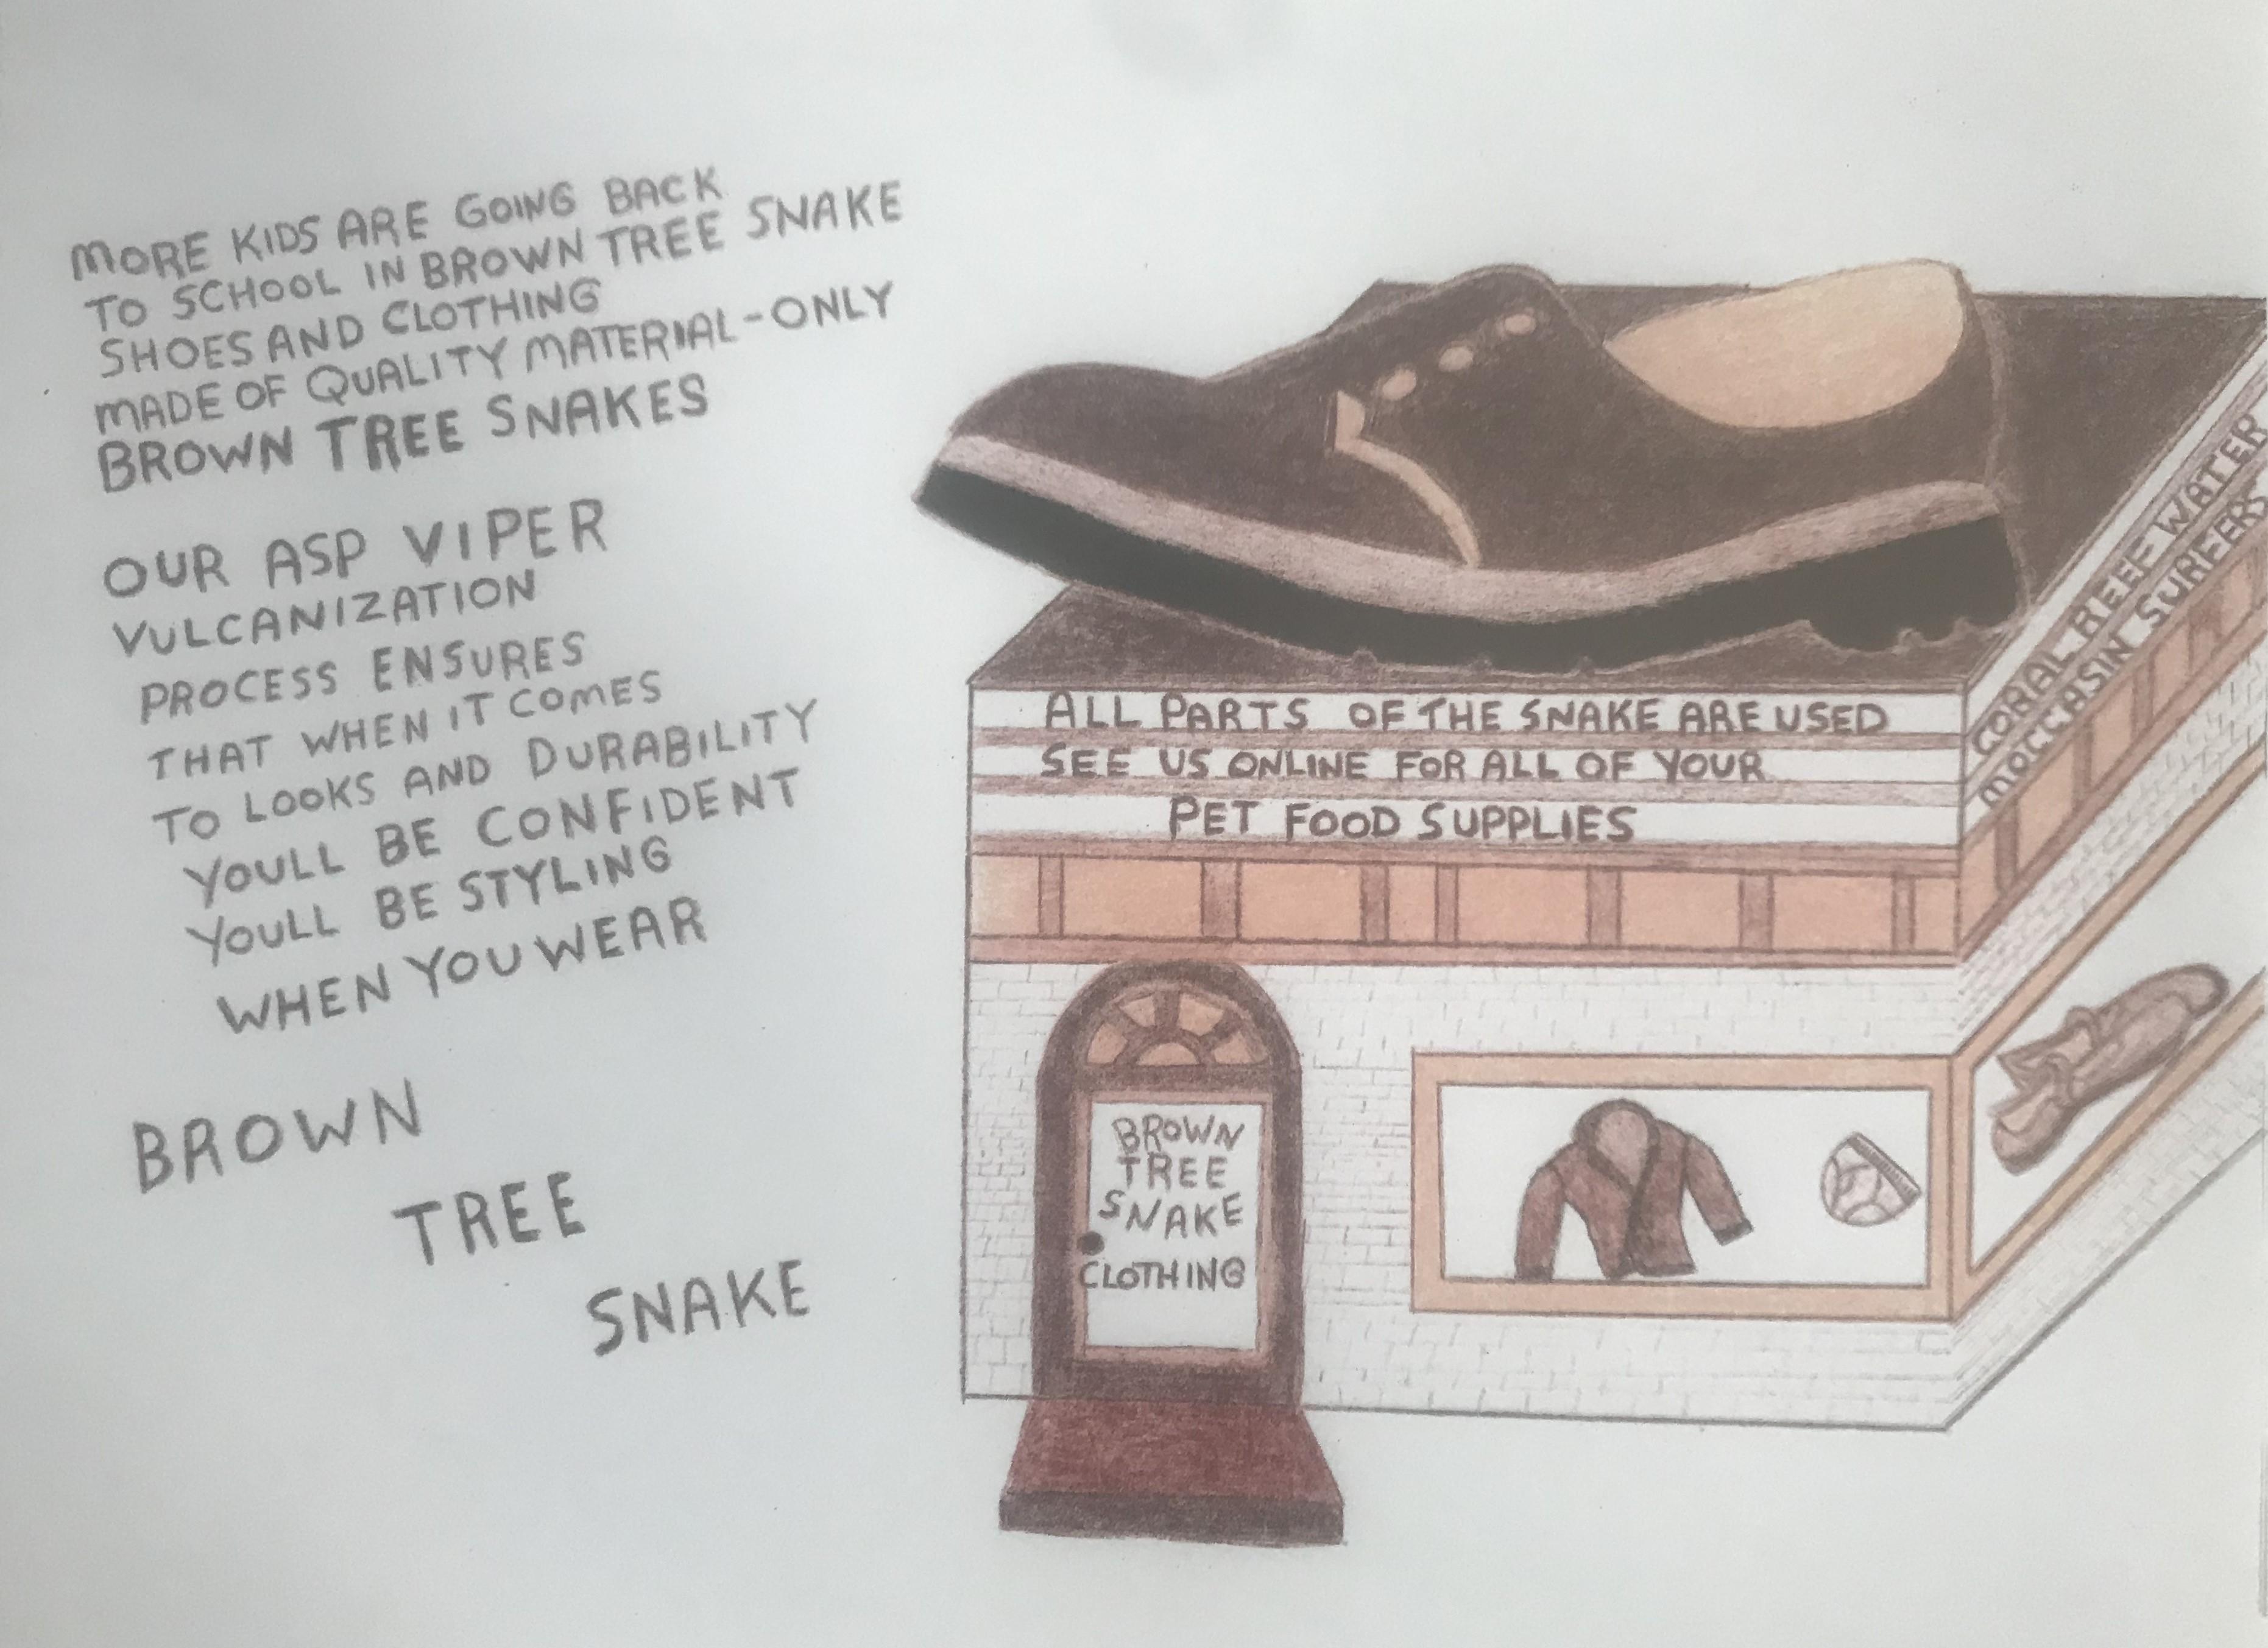 MORE KIDS ARE GOING BACK
TO SCHOOL IN BROWN TREE SNAKE
SHOES AND CLOTHING
MADE OF QUALITY MATERIAL-ONLY
BROWN TREE SNAKES
OUR ASP VIPER
VULCANIZATION
PROCESS ENSURES
THAT WHEN IT COMES
TO LOOKS AND DURABILITY
YOULL BE CONFIDENT
YOULL BE STYLING
WHEN YOU WEAR
BROWN
TREE
SNAKE
ALL PARTS OF THE SNAKE ARE USED
SEE US ONLINE FOR ALL OF YOUR
PET FOOD SUPPLIES
CORAL REEF WATER
MOCCASIN SURFERS
BROWN
TREE
SNAKE
CLOTHING